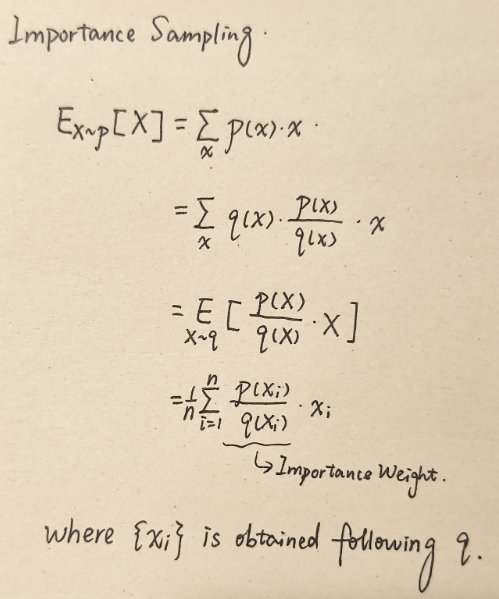 Importance Sampling.
E_{X~p}[X] = ∑_x p(x)·x.
= ∑_x q(x)·p(x)/q(x)·x
= E_{X~q}[p(X)/q(X)·X]
= 1/n ∑_{i=1}^{n} p(x_i)/q(x_i)·x_i
↳ Importance Weight.
where {x_i} is obtained following q.